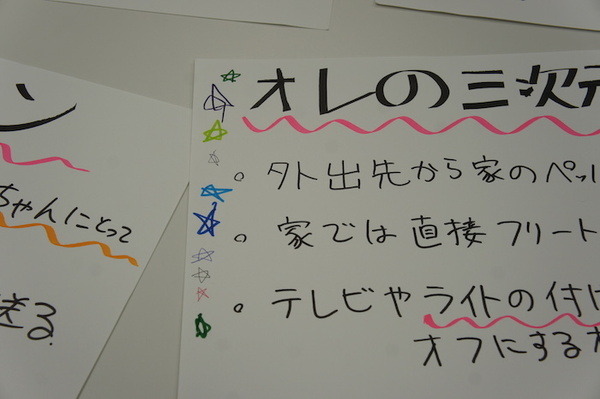 ン
ちゃんにとって
送る
オレの三次元
外出先から家のペッ
家では直接フリート
テレビやライトの付け
オフにする